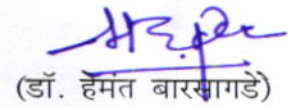 (डॉ. हेमंत बारसागडे)